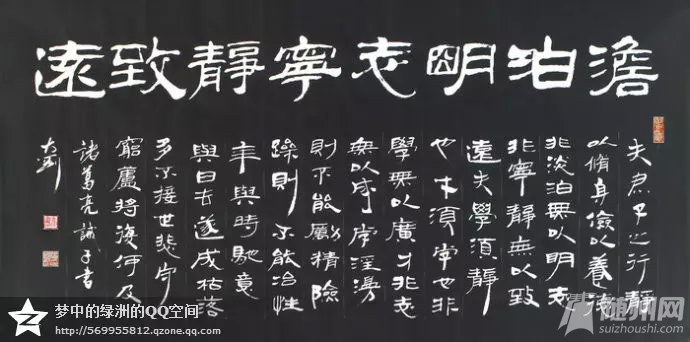 澹泊明志寧靜致遠
夫君子之行靜
以脩身儉以養德
非淡泊無以明志
非寧靜無以致
遠夫學須靜
也才須學也非
學無以廣才非志
無以成學淫漫
則不能勵精險
躁則不能冶性
年與時馳意
與日去遂成枯落
多不接世悲守
窮廬將復何及
諸葛亮誡子書
梦中的绿洲的QQ空间
http://569955812.qzone.qq.com
随州网
suizhoushi.com